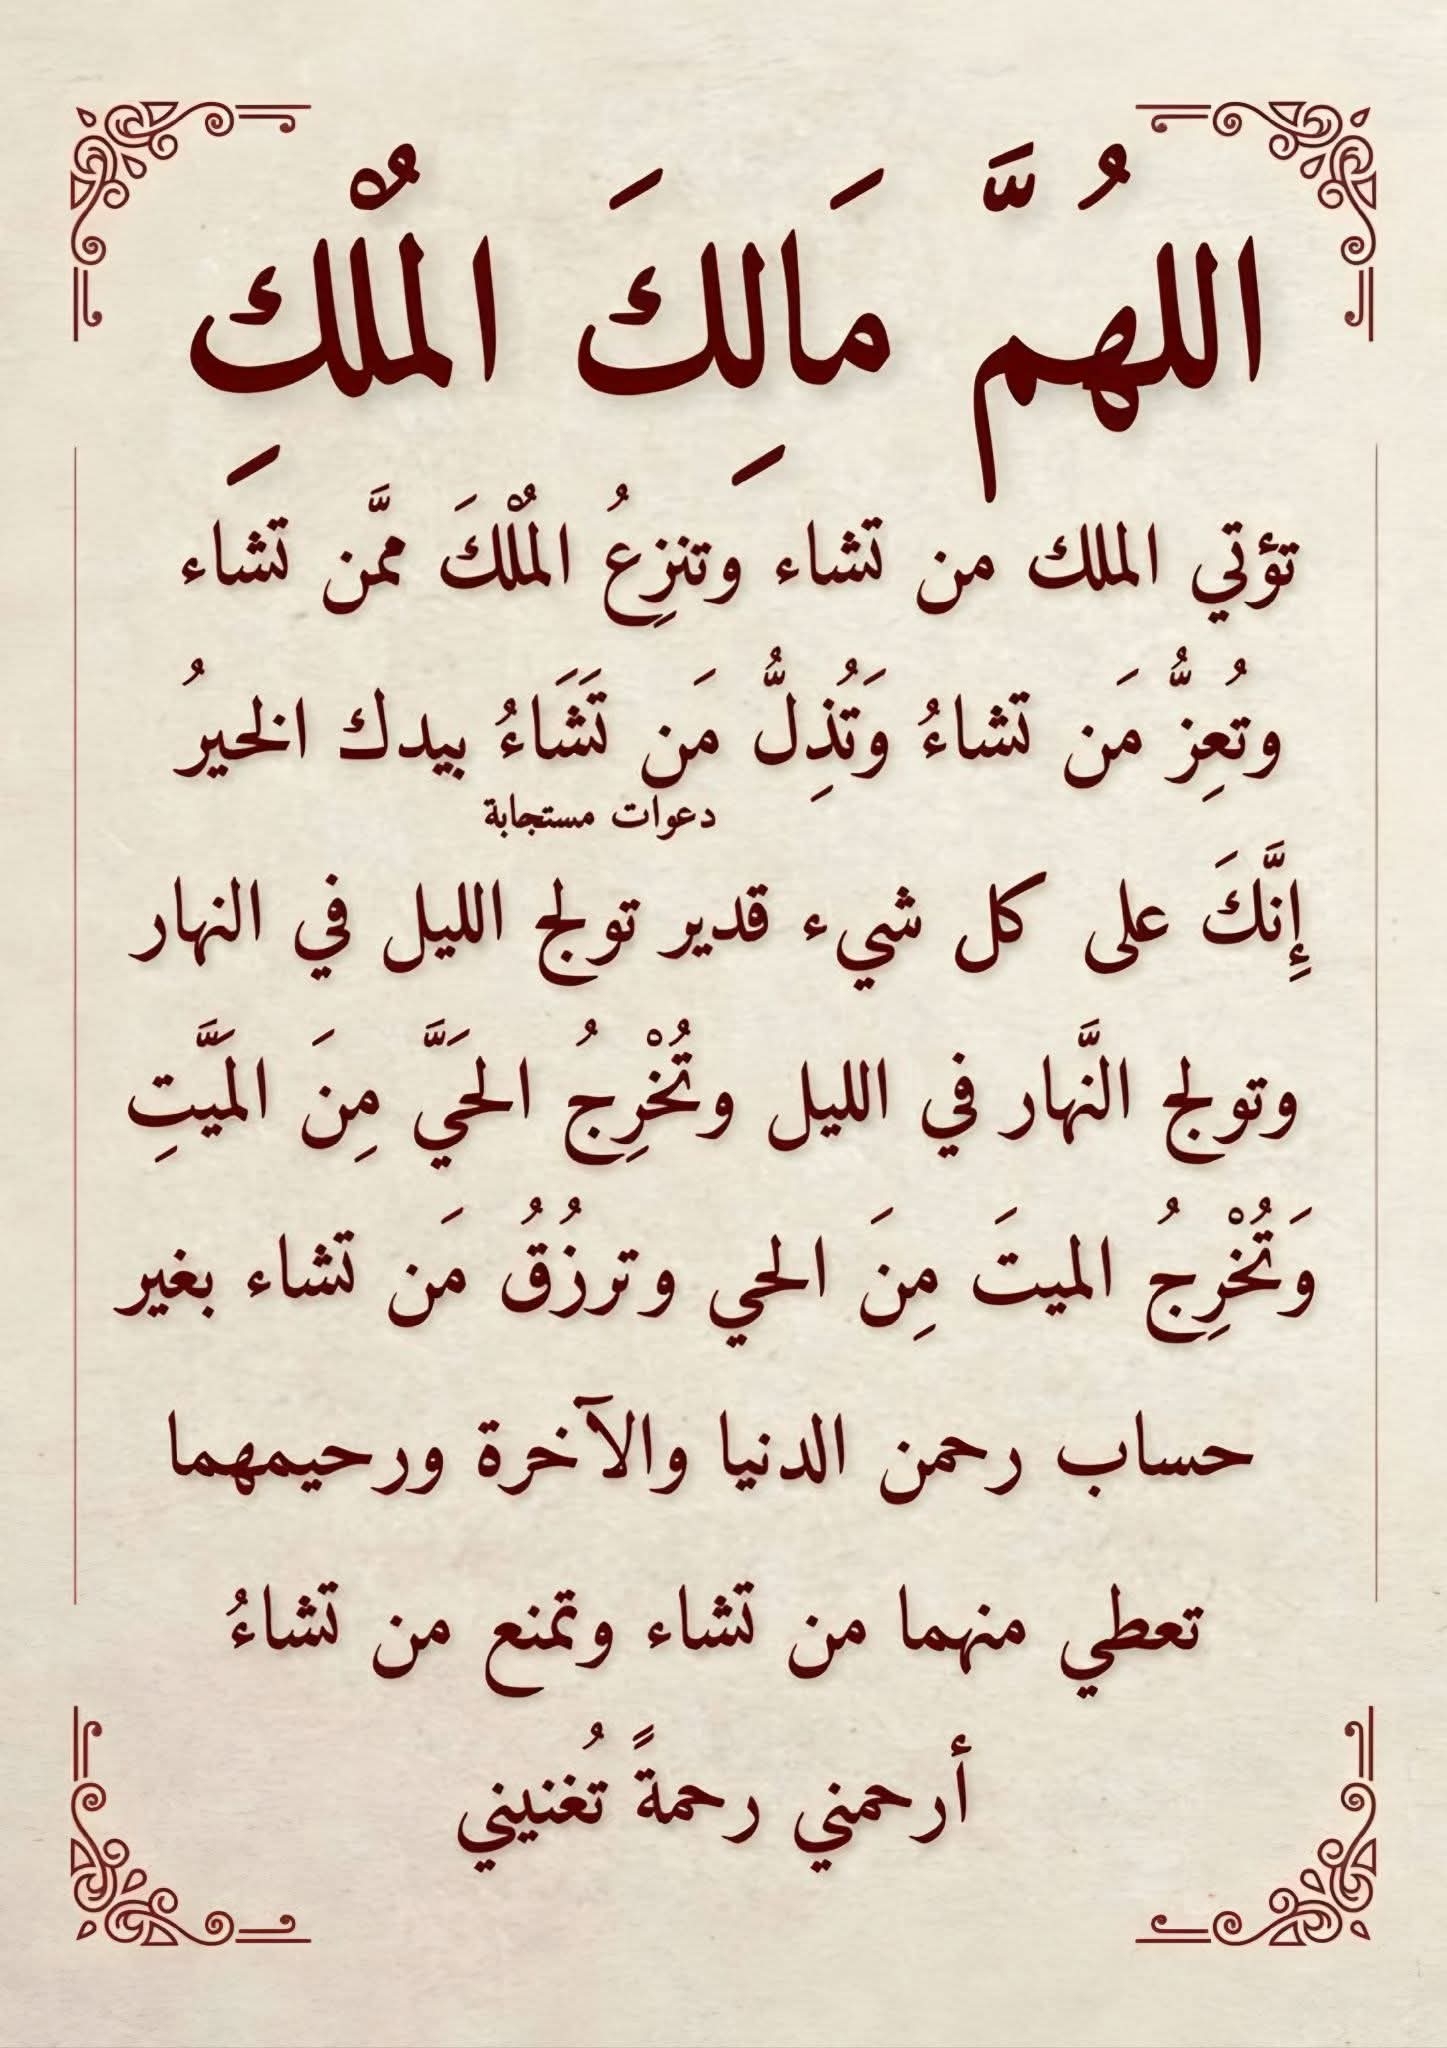 اللهُمَّ مَالِكَ الْمُلْكِ
تؤتي الملك من تشاء وتنزِعُ الْمُلْكَ ممَّن تشاء
وتُعِزُّ مَن تشاءُ وَتُذِلُّ مَن تَشَاءُ بيدك الخيرُ
دعوات مستجابة
إِنَّكَ على كل شيء قدير تولج الليل في النهار
وتولج النَّهار في الليل وتُخْرِجُ الحَيَّ مِنَ المَيَّتِ
وَتُخْرِجُ الميتَ مِنَ الحي وترزُقُ مَن تشاء بغير
حساب رحمن الدنيا والآخرة ورحيمهما
تعطي منهما من تشاء وتمنع من تشاءُ
أرحمني رحمةً تُغنيني